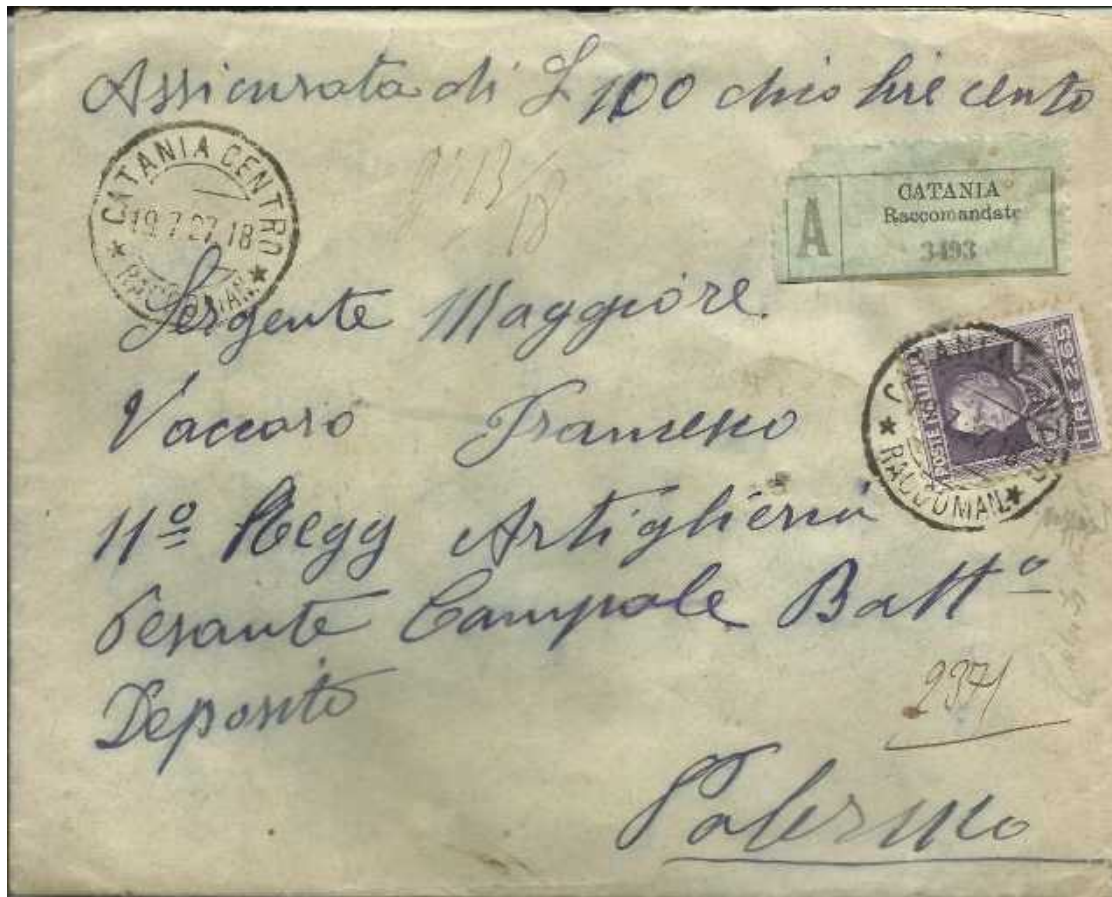 Assicurata di £ 100 dico lire cento
CATANIA CENTRO
19.7.27.18
RACCOMAN.
A
CATANIA
Raccomandate
3493
Sergente Maggiore.
LIRE 2.65
POSTE ITALIANE
CATANIA CEN
RACCOMAN.
Vaccaro Francesco
11º Regg Artiglieria
Pesante Campale Battº
Deposito
2371
Palermo